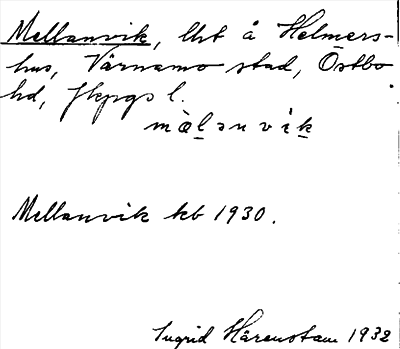 Mellanvik, lht å Helmers-
hus, Värnamo stad, Östbo
hd, Jkpgs l.
mὰlənvik
Mellanvik kb 1930.
Ingrid Härenstam 1932